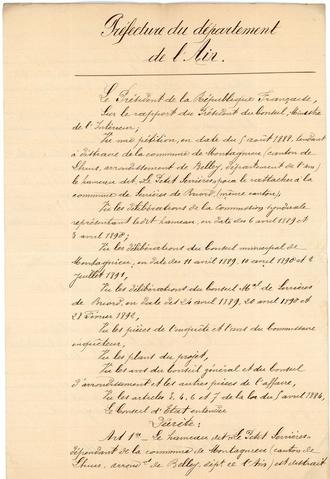 Préfecture du département
de l'Ain.
Le Président de la République Française,
Sur le rapport du Président du Conseil, Ministre
de l'Intérieur;
Vu une pétition, en date du 5 août 1888, tendant
à distraire de la commune de Montagnieu (canton de
Lhuis, arrondissement de Belley, département de l'Ain)
le hameau dit, Le Petit Serrières, pour le rattacher à la
commune de Serrières de Briord (même canton),
Vu les délibérations de la Commission syndicale
représentant ledit hameau, en date des 6 avril 1889 et
3 avril 1892;
Vu les délibérations du Conseil municipal de
Montagnieu, en date des 11 avril 1889, 10 avril 1890 et 2
juillet 1891,
Vu les délibérations du Conseil Mal de Serrières
de Briord, en date des 24 avril 1889, 20 avril 1890 et
28 Février 1892,
Vu les pièces de l'enquête et l'avis du Commissaire
enquêteur,
Vu les plans du projet,
Vu les avis du Conseil général et du Conseil
d'arrondissement et les autres pièces de l'affaire,
Vu les articles 3, 4, 6 et 7 de la loi du 5 avril 1884,
Le Conseil d'Etat entendu
Décrète:
Art 1er — Le hameau dit Le Petit Serrières
dépendant de la commune de Montagnieu (canton de
Lhuis, arront de Belley, dépt de l'Ain) est distrait